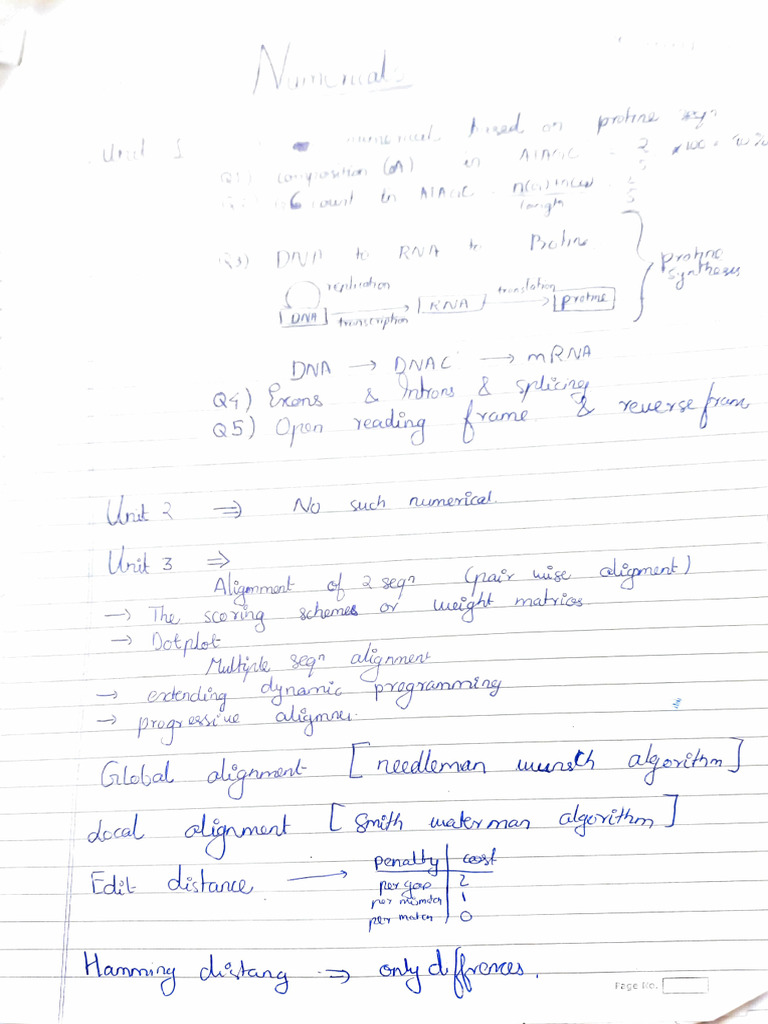 Numericals
Unit 1 numericals based on protine seqn
Q1) composition (A) in ATAGC = 2/5 ×100 = 40%
count in ATAGC = length
Q3) DNA to RNA to Protine
replication
translation
DNA RNA protine
transcription
protine synthesis
DNA → DNAC → mRNA
Q4) Exons & Introns & splicing
Q5) Open reading frame & reverse fram
Unit 2 ⇒ No such numerical.
Unit 3 ⇒
Alignment of 2 seqn (pair wise aligment)
→ The scoring schemes or weight matrios
→ Dotplot
Multiple seqn alignment
→ extending dynamic programming
→ progressive
Global alignment [needleman wunsch algorithm]
Local alignment [smith waterman algorithm]
Edit distance → penalty cost
per gap 2
per 1
per match 0
Hamming distang → only diffrences.
Page No.